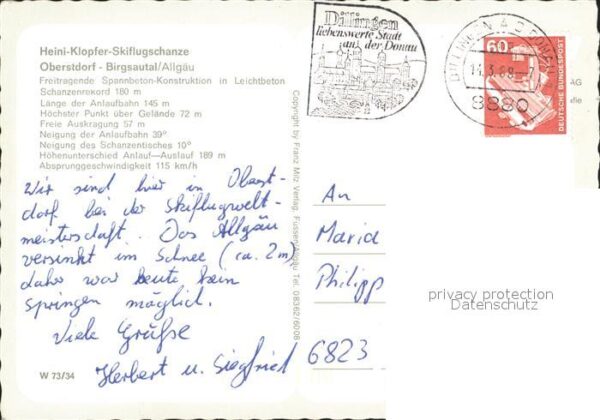 Heini-Klopfer-Skiflugschanze
Oberstdorf - Birgsautal/Allgäu
Freitragende Spannbeton-Konstruktion in Leichtbeton
Schanzenrekord 180 m
Länge der Anlaufbahn 145 m
Höchster Punkt über Gelände 72 m
Freie Auskragung 57 m
Neigung der Anlaufbahn 39°
Neigung des Schanzentisches 10°
Höhenunterschied Anlauf—Auslauf 189 m
Absprunggeschwindigkeit 115 km/h
Wir sind hier in Oberst-
dorf bei der Skiflugwelt-
meisterschaft. Das Allgäu
versinkt im Schnee (ca. 2m),
daher war heute kein
springen möglich.
Viele Grüße
Herbert u. Siegfried
W 73/34
Copyright by Franz Milz Verlag, Füssen/Allgäu Tel. 08362/6008
Dillingen
liebenswerte Stadt
an der Donau
DILLINGEN A D DONAU
14.3.88
8880
60
DEUTSCHE BUNDESPOST
AG
An
Maria
Philipp
6823
privacy protection
Datenschutz